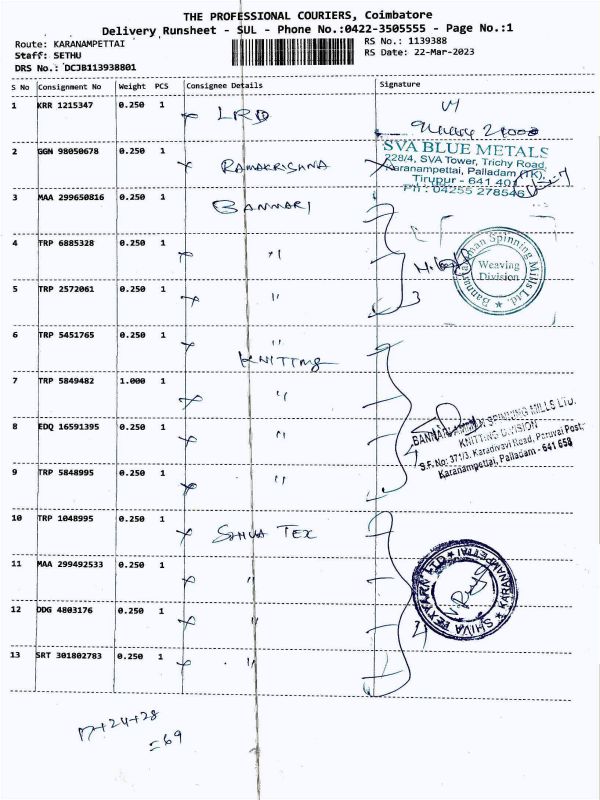 THE PROFESSIONAL COURIERS, Coimbatore
Delivery Runsheet - SUL - Phone No.:0422-3505555 - Page No.:1
Route: KARANAMPETTAI
RS No.: 1139388
Staff: SETHU
RS Date: 22-Mar-2023
DRS No.: DCJB113938801
S No Consignment No Weight PCS Consignee Details Signature
1 KRR 1215347 0.250 1 LRD
2 GGN 98050678 0.250 1 RAMAKRISHNA
SVA BLUE METALS
228/4, SVA Tower, Trichy Road,
Karanampettai, Palladam (TK),
Tirupur - 641 401
Ph : 04255 278546
3 MAA 299650816 0.250 1 BANNARI
4 TRP 6885328 0.250 1 "
Bannari Amman Spinning Mills Ltd.
Weaving
Division
5 TRP 2572061 0.250 1 "
3
6 TRP 5451765 0.250 1 "
KNITTING
7 TRP 5849482 1.000 1 "
8 EDQ 16591395 0.250 1 "
BANNARI AMMAN SPINNING MILLS LTD.
KNITTING DIVISION
S.F. No: 371/3, Karadivavi Road, Paruvai Post,
Karanampettai, Palladam - 641 658
9 TRP 5848995 0.250 1 "
10 TRP 1048995 0.250 1 SHIVA TEX
11 MAA 299492533 0.250 1 "
SHIVA TEXYARN LTD KARANAMPETTAI
12 DDG 4803176 0.250 1 "
13 SRT 301802783 0.250 1 "
17+24+28
=69